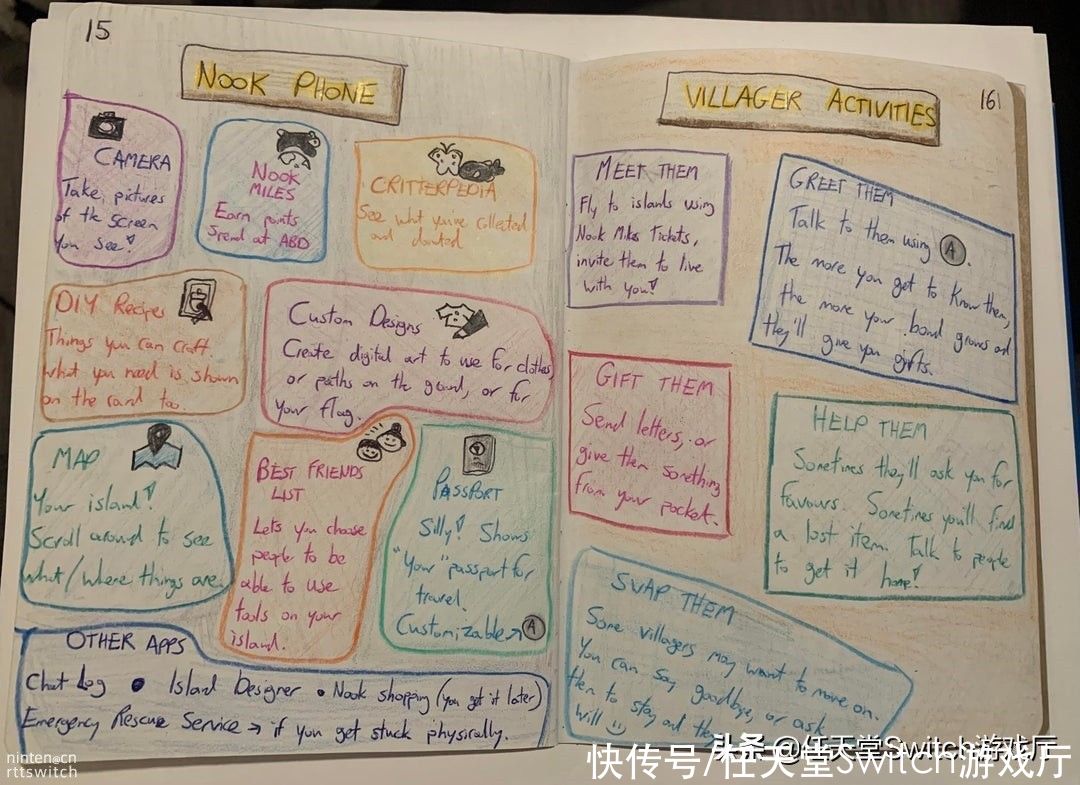 15
NOOK PHONE
CAMERA
Take pictures
of the screen
you see!
NOOK
MILES
Earn points
Spend at ABD
CRITTERPEDIA
See what you've collected
and donated
DIY Recipes
Things you can craft.
What you need is shown
on the card too.
Custom Designs
Create digital art to use for clothes,
or paths on the ground, or for
your flag.
MAP
Your island!
Scroll around to see
what/where things are.
BEST FRIENDS
LIST
Lets you choose
people to be
able to use
tools on your
island.
PASSPORT
Silly! Shows
"your" passport for
travel.
Customizable→A
OTHER APPS
Chat Log • Island Designer • Nook shopping (you get it later)
Emergency Rescue Service → if you get stuck physically.
16
VILLAGER ACTIVITIES
MEET THEM
Fly to islands using
Nook Miles Tickets,
invite them to live
with you!
GREET THEM
Talk to them using A.
The more you get to know them,
the more your bond grows and
they'll give you gifts.
GIFT THEM
Send letters, or
give them something
from your pocket.
HELP THEM
Sometimes they'll ask you for
favours. Sometimes you'll find
a lost item. Talk to people
to get it home!
SWAP THEM
Some villagers may want to move on.
You can say goodbye, or ask
them to stay and they
will
头条 @任天堂Switch游戏厅
快传号/任天堂Switch游戏厅
ninten@cn
rttswitch